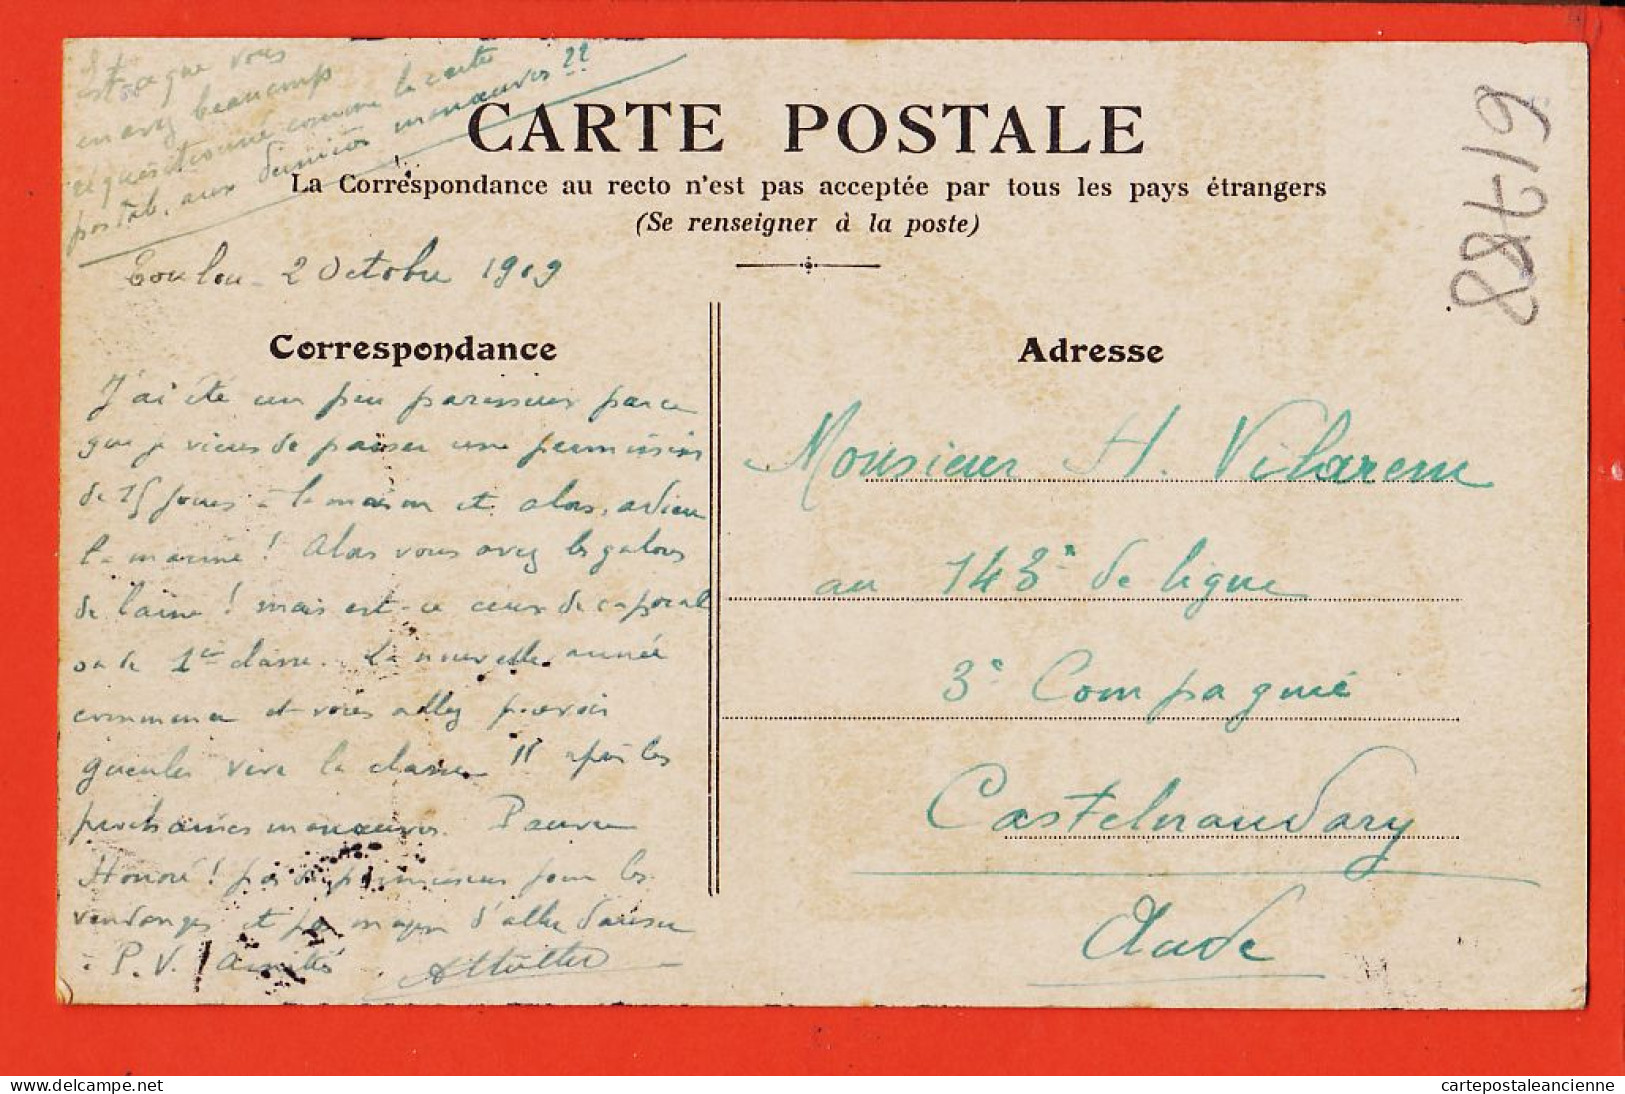 Est-ce que vous
en avez beaucamp
réquisitionné comme la carte
postale, aux dernières manœuvres ??
CARTE POSTALE
La Correspondance au recto n'est pas acceptée par tous les pays étrangers
(Se renseigner à la poste)
Toulon - 2 Octobre 1909
61788
Correspondance
J'ai été un peu paresseux parce
que je viens de passer une permission
de 15 jours à la maison et alors, adieu
la marine ! Alors vous avez les galons
de laine ! mais est-ce ceux de caporal
ou de 1ère classe. La nouvelle année
commence et vous allez pouvoir
gueuler vive la classe après les
prochaines manœuvres. Pauvre
Honoré ! pas de permission pour les
vendanges et pas moyen d'aller danser
à P.V. ! Amitiés
Adresse
Monsieur H. Vilarem
au 143e de ligne
3e Compagnie
Castelnaudary
Aude
cartepostaleancienne